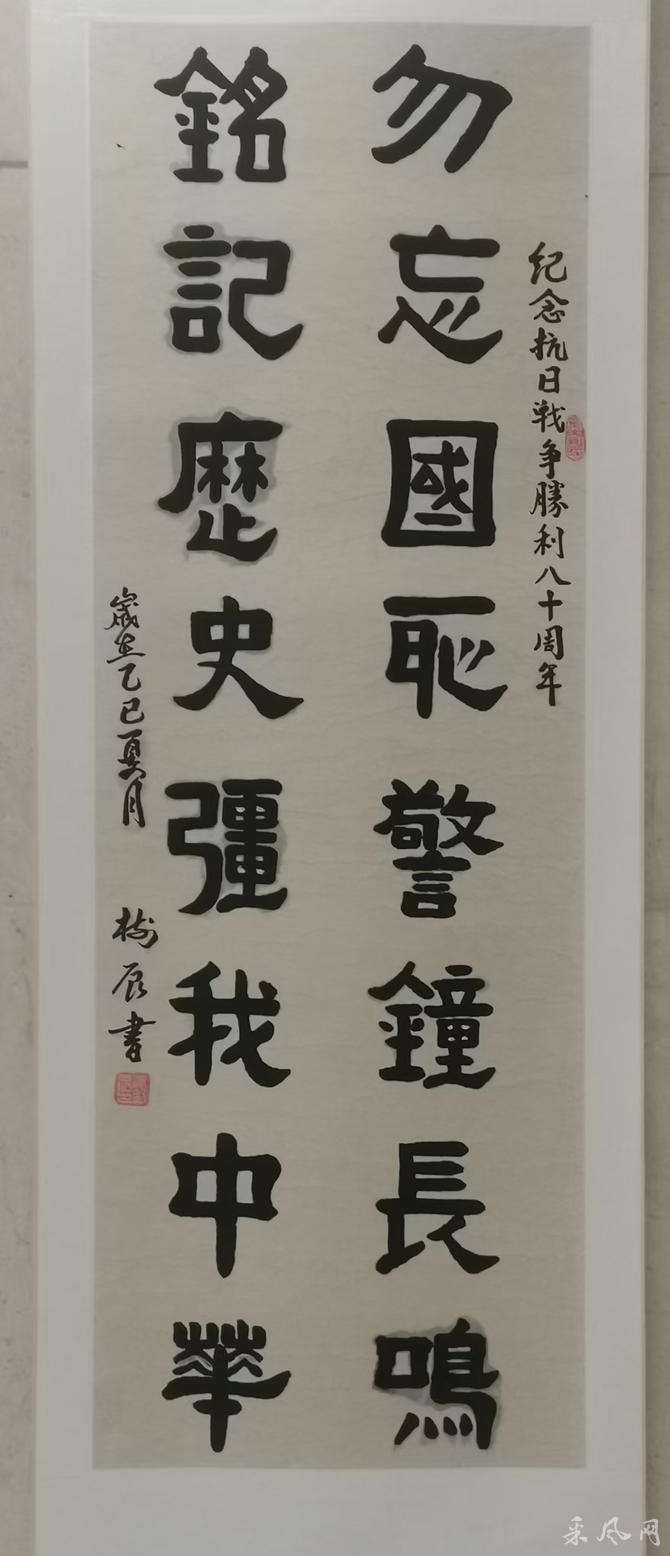 紀念抗日戰争勝利八十周年
勿忘國恥警鐘長鳴
銘記歷史彊我中華
歲在乙巳夏月
樹辰書
采风网